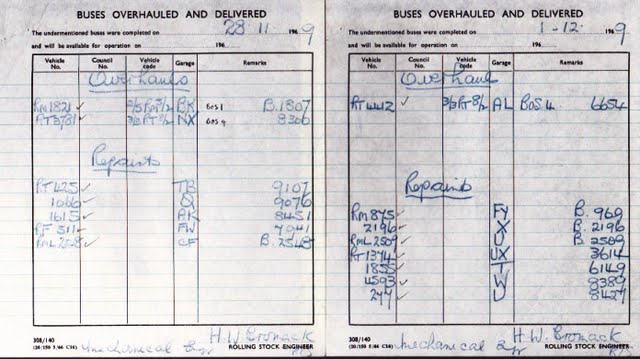 BUSES OVERHAULED AND DELIVERED
The undermentioned buses were completed on 28.11 1969
and will be available for operation on 196
Vehicle No. Council No. Vehicle code Garage Remarks
Overhauls
RM1821 ✓ BK BOS 1 B.1807
RT3781 ✓ NX BOS 4 8306
Repaints
RT425 ✓ TB 9107
1066 ✓ Q 9076
1615 ✓ AK 8451
RF 511 ✓ FW 7941
RML2548 ✓ CF B.2548
H.W. Bromack
308/140 ROLLING STOCK ENGINEER
Mechanical Engr
BUSES OVERHAULED AND DELIVERED
The undermentioned buses were completed on 1-12. 1969
and will be available for operation on 196
Vehicle No. Council No. Vehicle code Garage Remarks
Overhaul
RT4412 ✓ AL BOS 4 6654
Repaints
RM875 ✓ FY B. 969
2196 ✓ X B. 2196
RML2509 ✓ U B. 2509
RT1374 ✓ UX 3614
1855 ✓ T 6149
4593 ✓ W 8389
277 ✓ U 8427
H.W. Bromack
308/140 ROLLING STOCK ENGINEER
Mechanical Engr